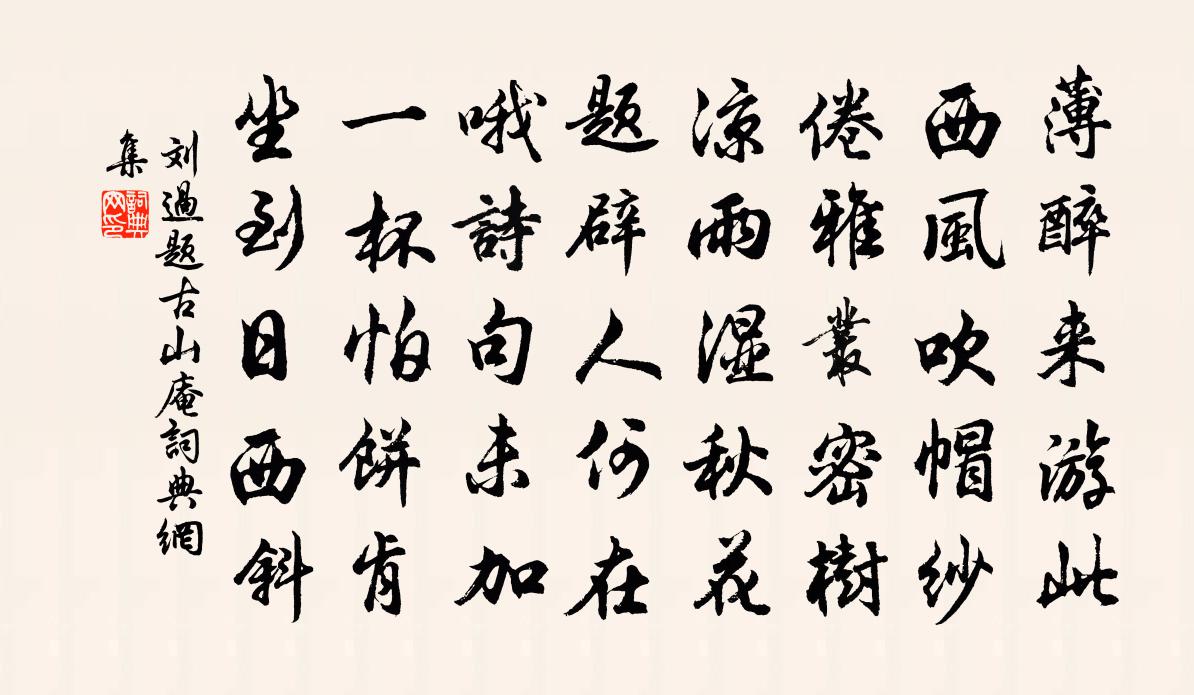 薄醉来游此
西風吹帽紗
倦雅叢密樹
凉雨湿秋花
題辟人何在
哦詩句未加
一杯怕餅肯
坐到日西斜
刘過題古山庵詞典網
集
詞典
网印